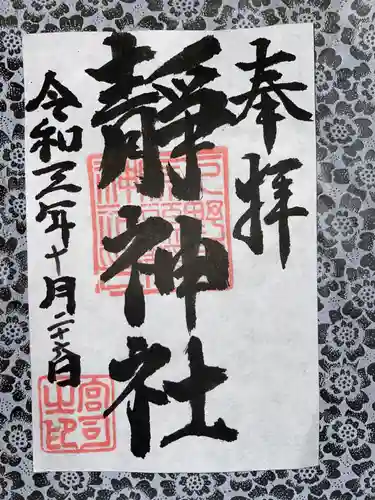 奉拝
靜神社
令和三年十月二十五日
宮司之印